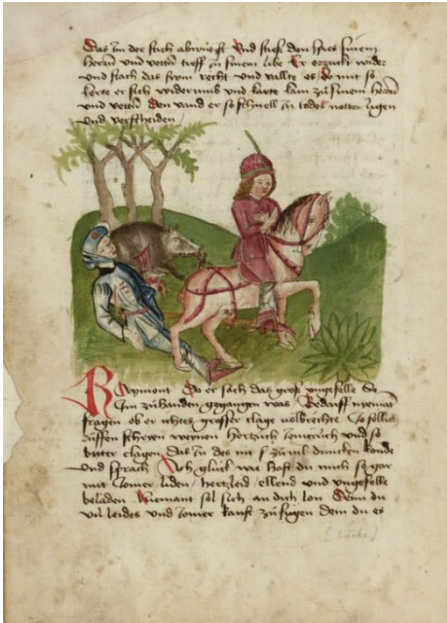 Das im der stich abwuest Vnd stieß den spies sinem
herrn vnd vettern tieff zu sinem libe Er erzucht wider
vnd stach das swin recht vnd vallte es do mit so
kerte er sich widerumb vnd karte kam zu sinem herrn
vnd vettern Den vand er so schnell in todes nötten ligen
vnd verscheiden
Reymont Do er sach das groß vngefelle So
Im zuhanden gegangen was Bedarff nyeman
fragen ob er ichtes grosser clage volbrechte So
süffzen schrien weynen hertzlich Jomerlich vnd so
bitter clagen Das zu des mit zuuil duncken
vnd sprach Ach glück wie hast du mich so gar
mit Jomer liden hertzleid ellend vnd vngefelle
beladen Niemant sol sich an dich lon Denn du
vil leides vnd Jomer kanst zufügen dem du es